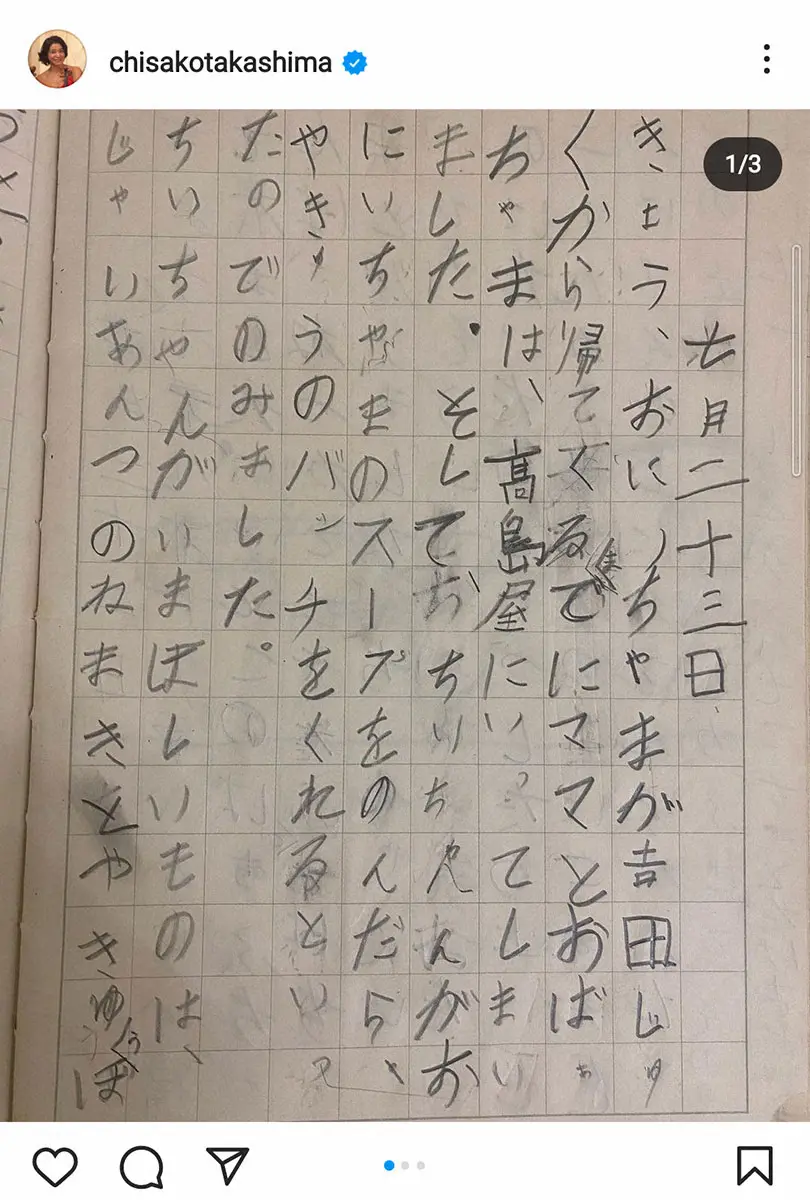 chisakotakashima
1/3
七月二十三日
きょう、おにいちゃまが吉田じゅ
くから帰てくるまでにママとおばあ
ちゃまは、高島屋にいってしまい
ました。そしておちいちゃんがお
にいちゃまのスープをのんだら、
やきゅうのバッチをくれるといっ
たのでのみました。
ちいちゃんがいまほしいものは、
じゃいあんつのねまきとやきゅうぼ